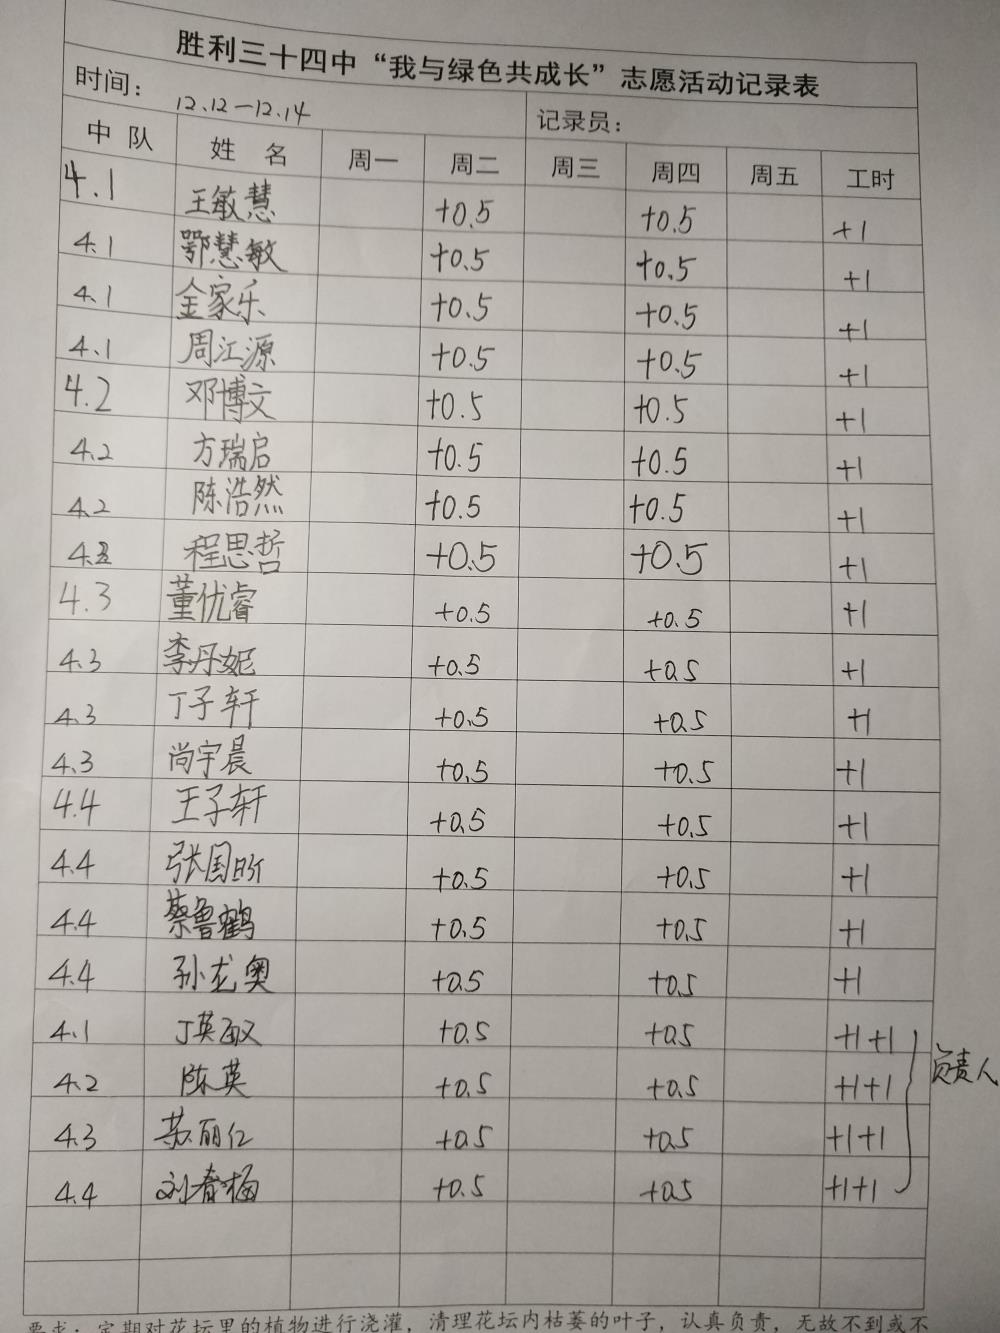 胜利三十四中“我与绿色共成长”志愿活动记录表
时间： 12.12—12.14 记录员：
中 队 姓 名 周一 周二 周三 周四 周五 工时
4.1 王敏慧 +0.5 +0.5 +1
4.1 鄂慧敏 +0.5 +0.5 +1
4.1 金家乐 +0.5 +0.5 +1
4.1 周江源 +0.5 +0.5 +1
4.2 邓博文 +0.5 +0.5 +1
4.2 方瑞启 +0.5 +0.5 +1
4.2 陈浩然 +0.5 +0.5 +1
4.2 程思哲 +0.5 +0.5 +1
4.3 董优睿 +0.5 +0.5 +1
4.3 李丹妮 +0.5 +0.5 +1
4.3 丁子轩 +0.5 +0.5 +1
4.3 尚宇晨 +0.5 +0.5 +1
4.4 王子轩 +0.5 +0.5 +1
4.4 张国昕 +0.5 +0.5 +1
4.4 蔡鲁鹤 +0.5 +0.5 +1
4.4 孙龙奥 +0.5 +0.5 +1
4.1 丁英 +0.5 +0.5 +1+1
4.2 陈英 +0.5 +0.5 +1+1 负责人
4.3 苏丽仁 +0.5 +0.5 +1+1
4.4 刘春梅 +0.5 +0.5 +1+1
要求：定期对花坛里的植物进行浇灌，清理花坛内枯萎的叶子，认真负责，无故不到或不